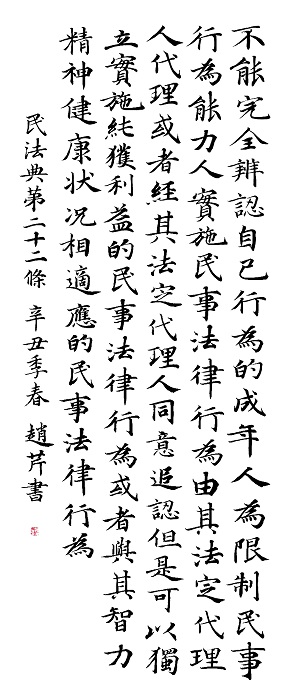 不能完全辨認自己行為的成年人為限制民事
行為能力人實施民事法律行為由其法定代理
人代理或者經其法定代理人同意追認但是可以獨
立實施純獲利益的民事法律行為或者與其智力
精神健康狀況相適應的民事法律行為
民法典第二十二條 辛丑季春 趙芹書